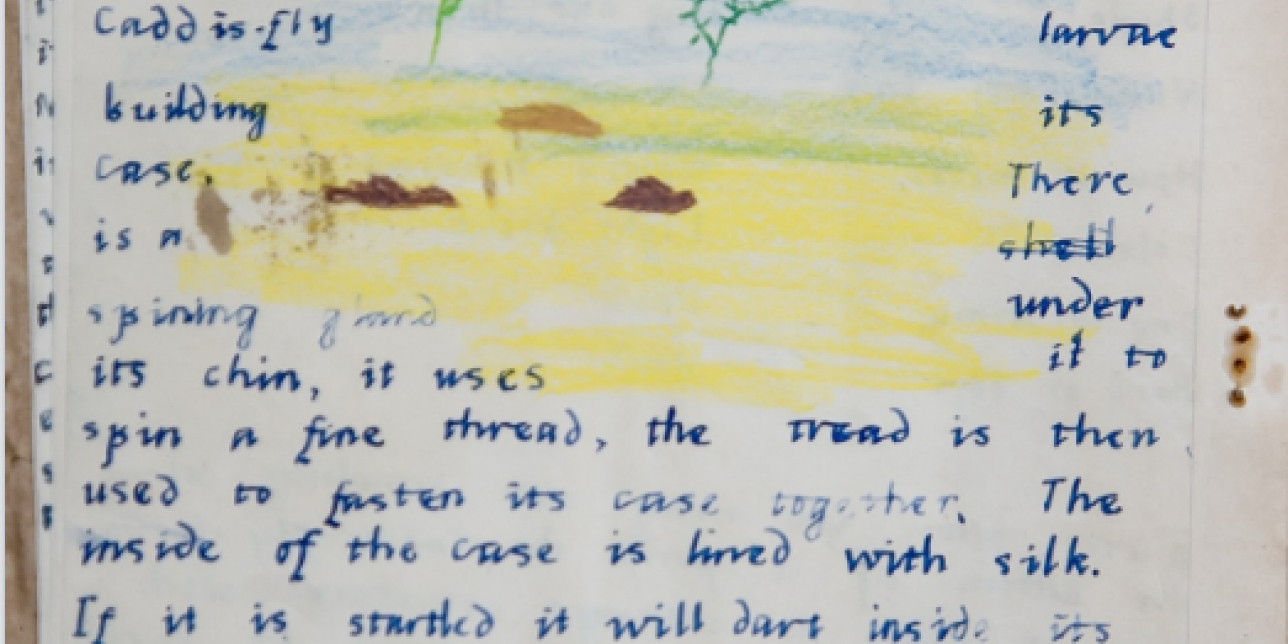 Caddis-fly larvae
building its
case. There
is a shell
spining gland under
its chin, it uses it to
spin a fine thread, the tread is then
used to fasten its case together. The
inside of the case is lined with silk.
If it is startled it will dart inside its